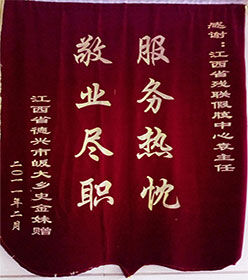 感谢：江西省残联假肢中心袁主任
服务热忱
敬业尽职
江西省德兴市皈大乡史金妹赠
二〇一一年二月